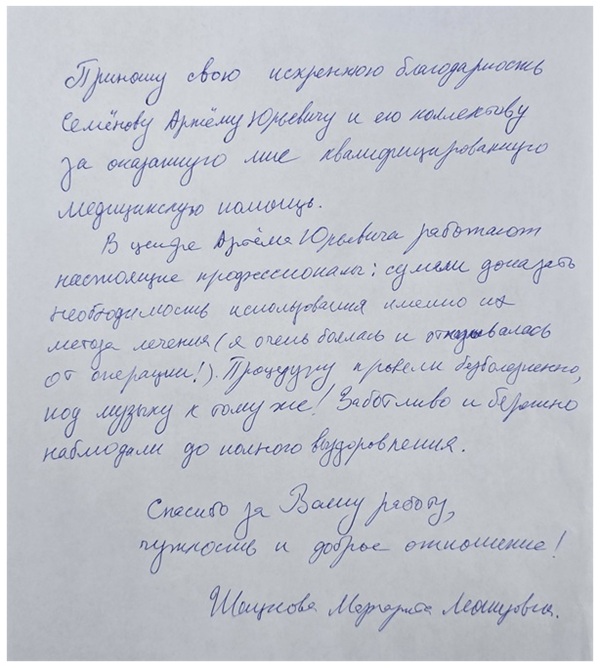 Приношу свою искреннюю благодарность
Семёнову Артёму Юрьевичу и его коллективу
за оказанную мне квалифицированную
медицинскую помощь.
В центре Артёма Юрьевича работают
настоящие профессионалы: сумели доказать
необходимость использования именно их
метода лечения (я очень боялась и отказывалась
от операции!). Процедуру провели безболезненно,
под музыку к тому же! Заботливо и бережно
наблюдали до полного выздоровления.
Спасибо за Вашу работу,
чуткость и доброе отношение!
Маргарита